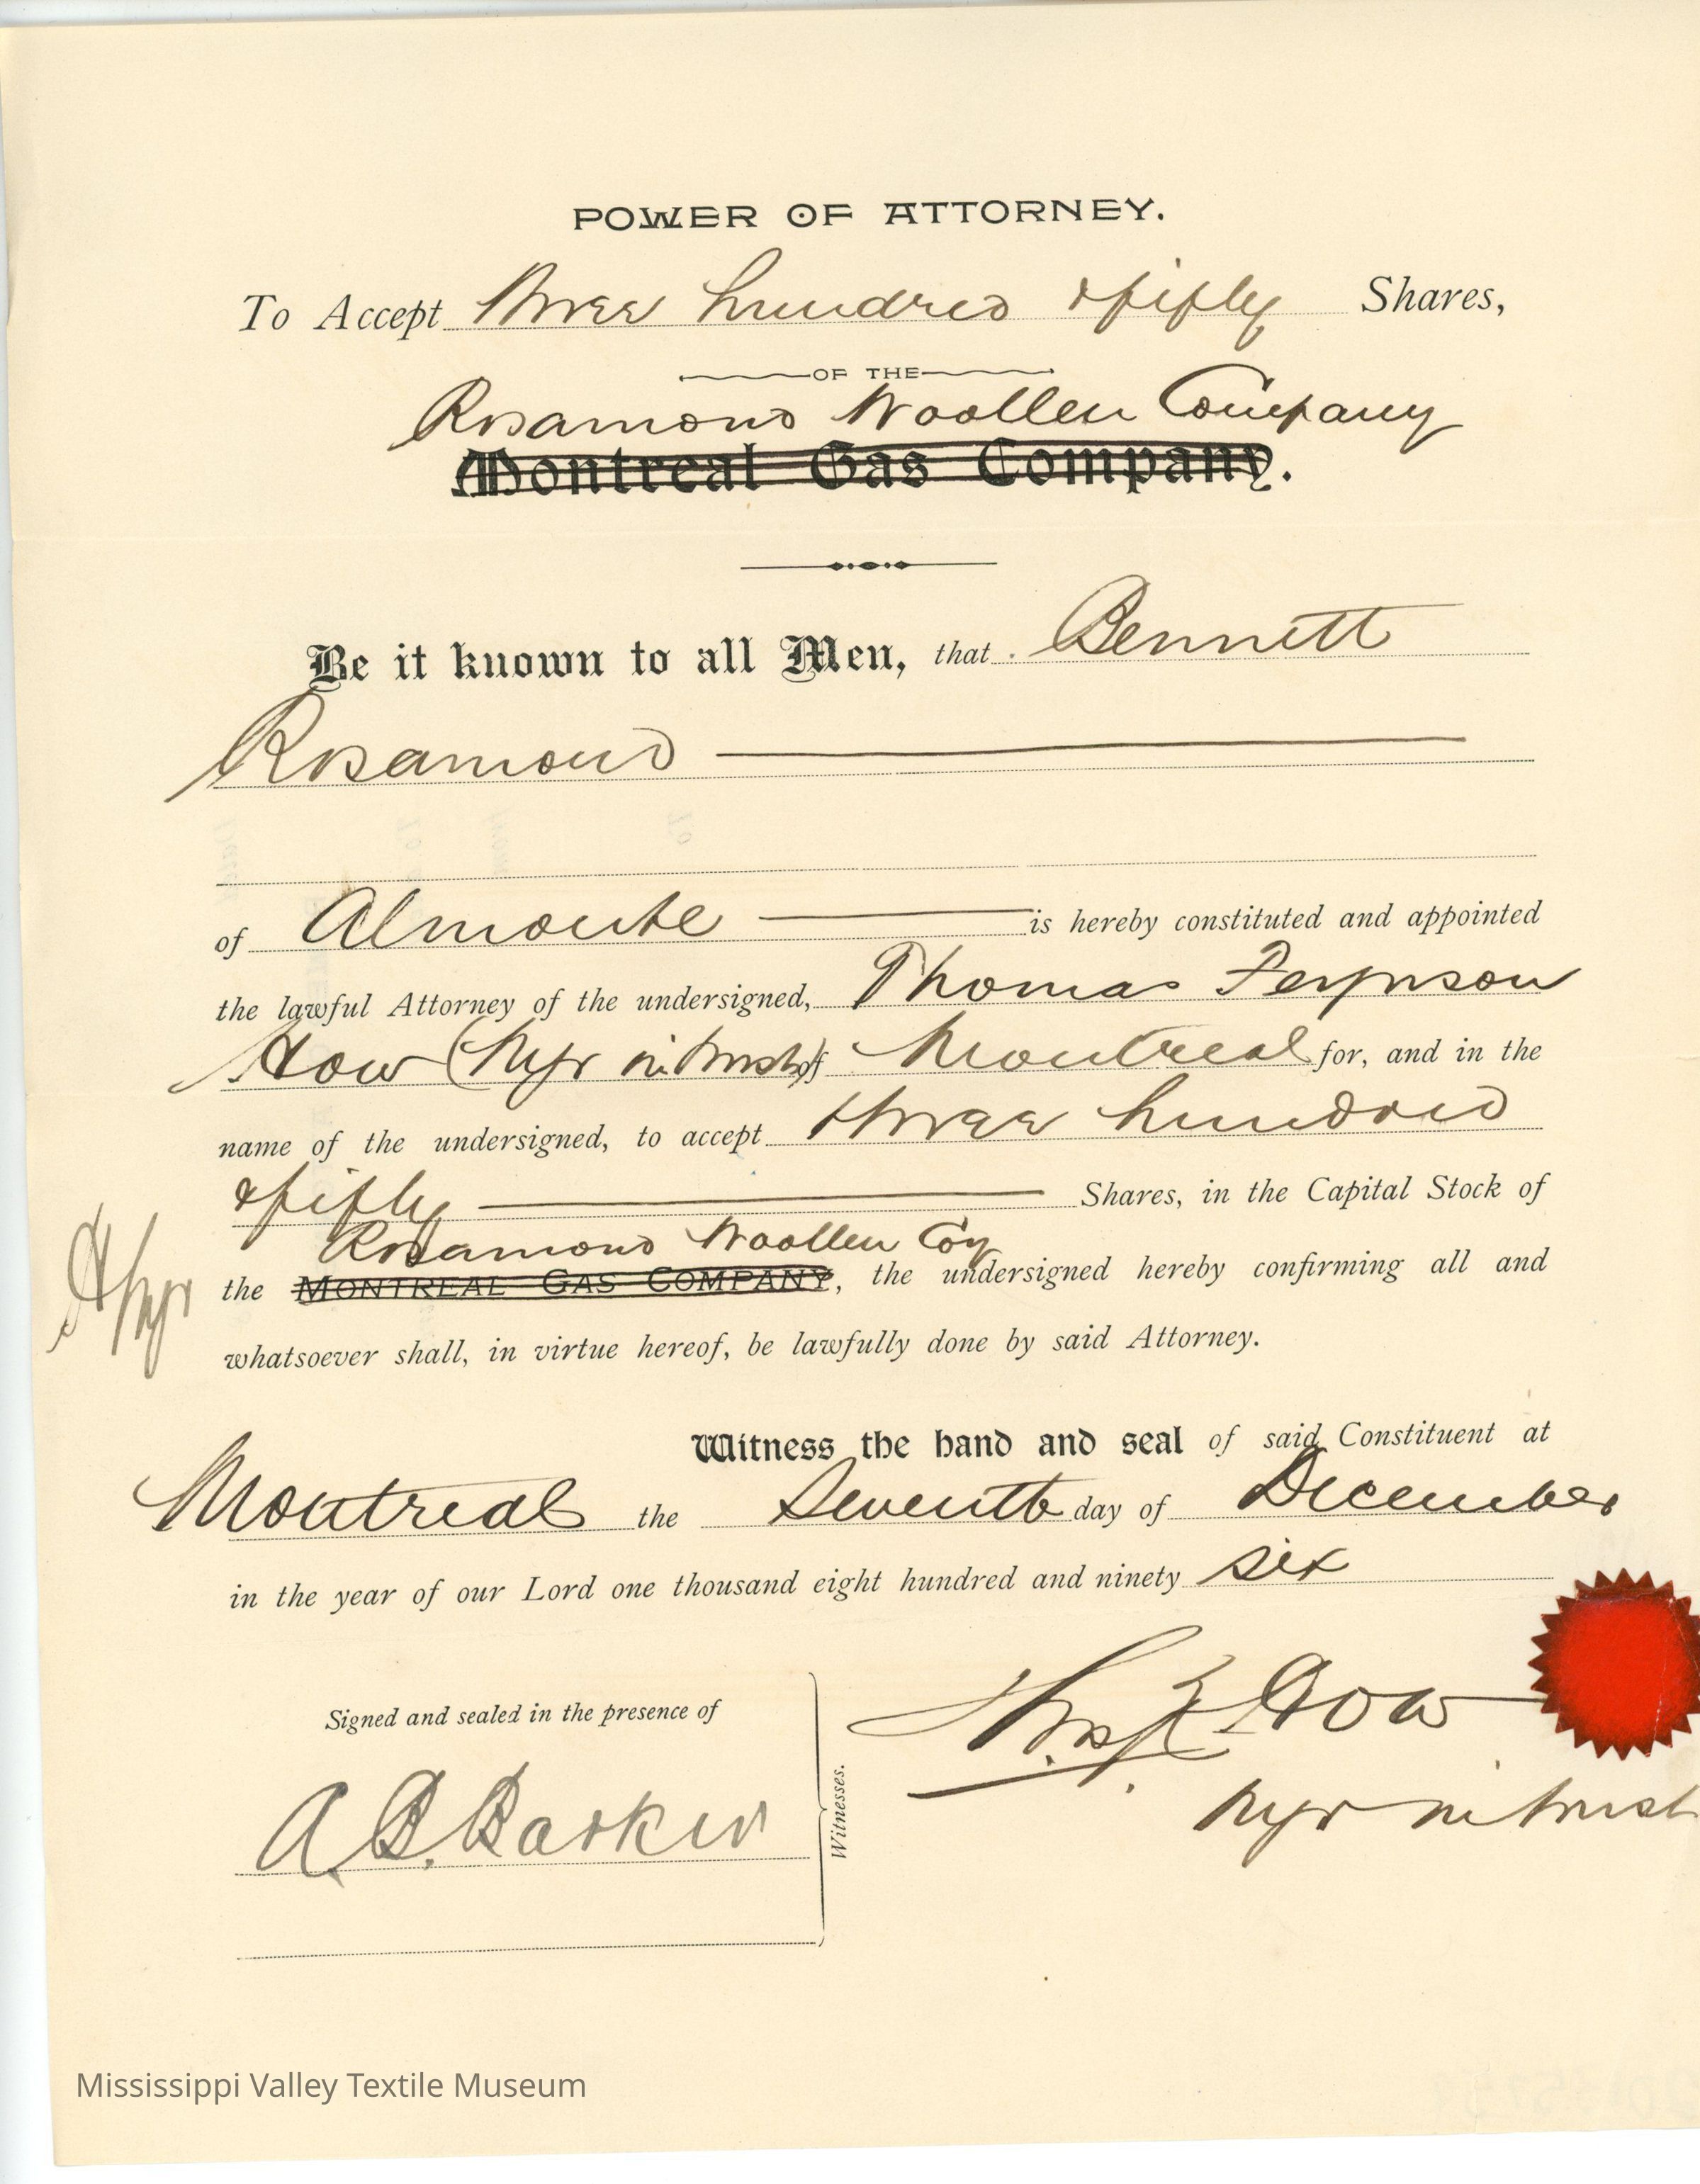 POWER OF ATTORNEY.
To Accept Three hundred & fifty Shares,
OF THE
Rosamond Woollen Company
Montreal Gas Company.
Be it known to all Men, that Bennett
Rosamond
of Almonte is hereby constituted and appointed
the lawful Attorney of the undersigned, Thomas Ferguson
How (Mgr in trust) of Montreal for, and in the
name of the undersigned, to accept three hundred
& fifty Shares, in the Capital Stock of
Rosamond Woollen Coy
the MONTREAL GAS COMPANY, the undersigned hereby confirming all and
whatsoever shall, in virtue hereof, be lawfully done by said Attorney.
Witness the hand and seal of said Constituent at
Montreal the Seventh day of December
in the year of our Lord one thousand eight hundred and ninety six
Signed and sealed in the presence of
Witnesses.
Thos F How
Mgr in trust
A. B. Barker
Mississippi Valley Textile Museum